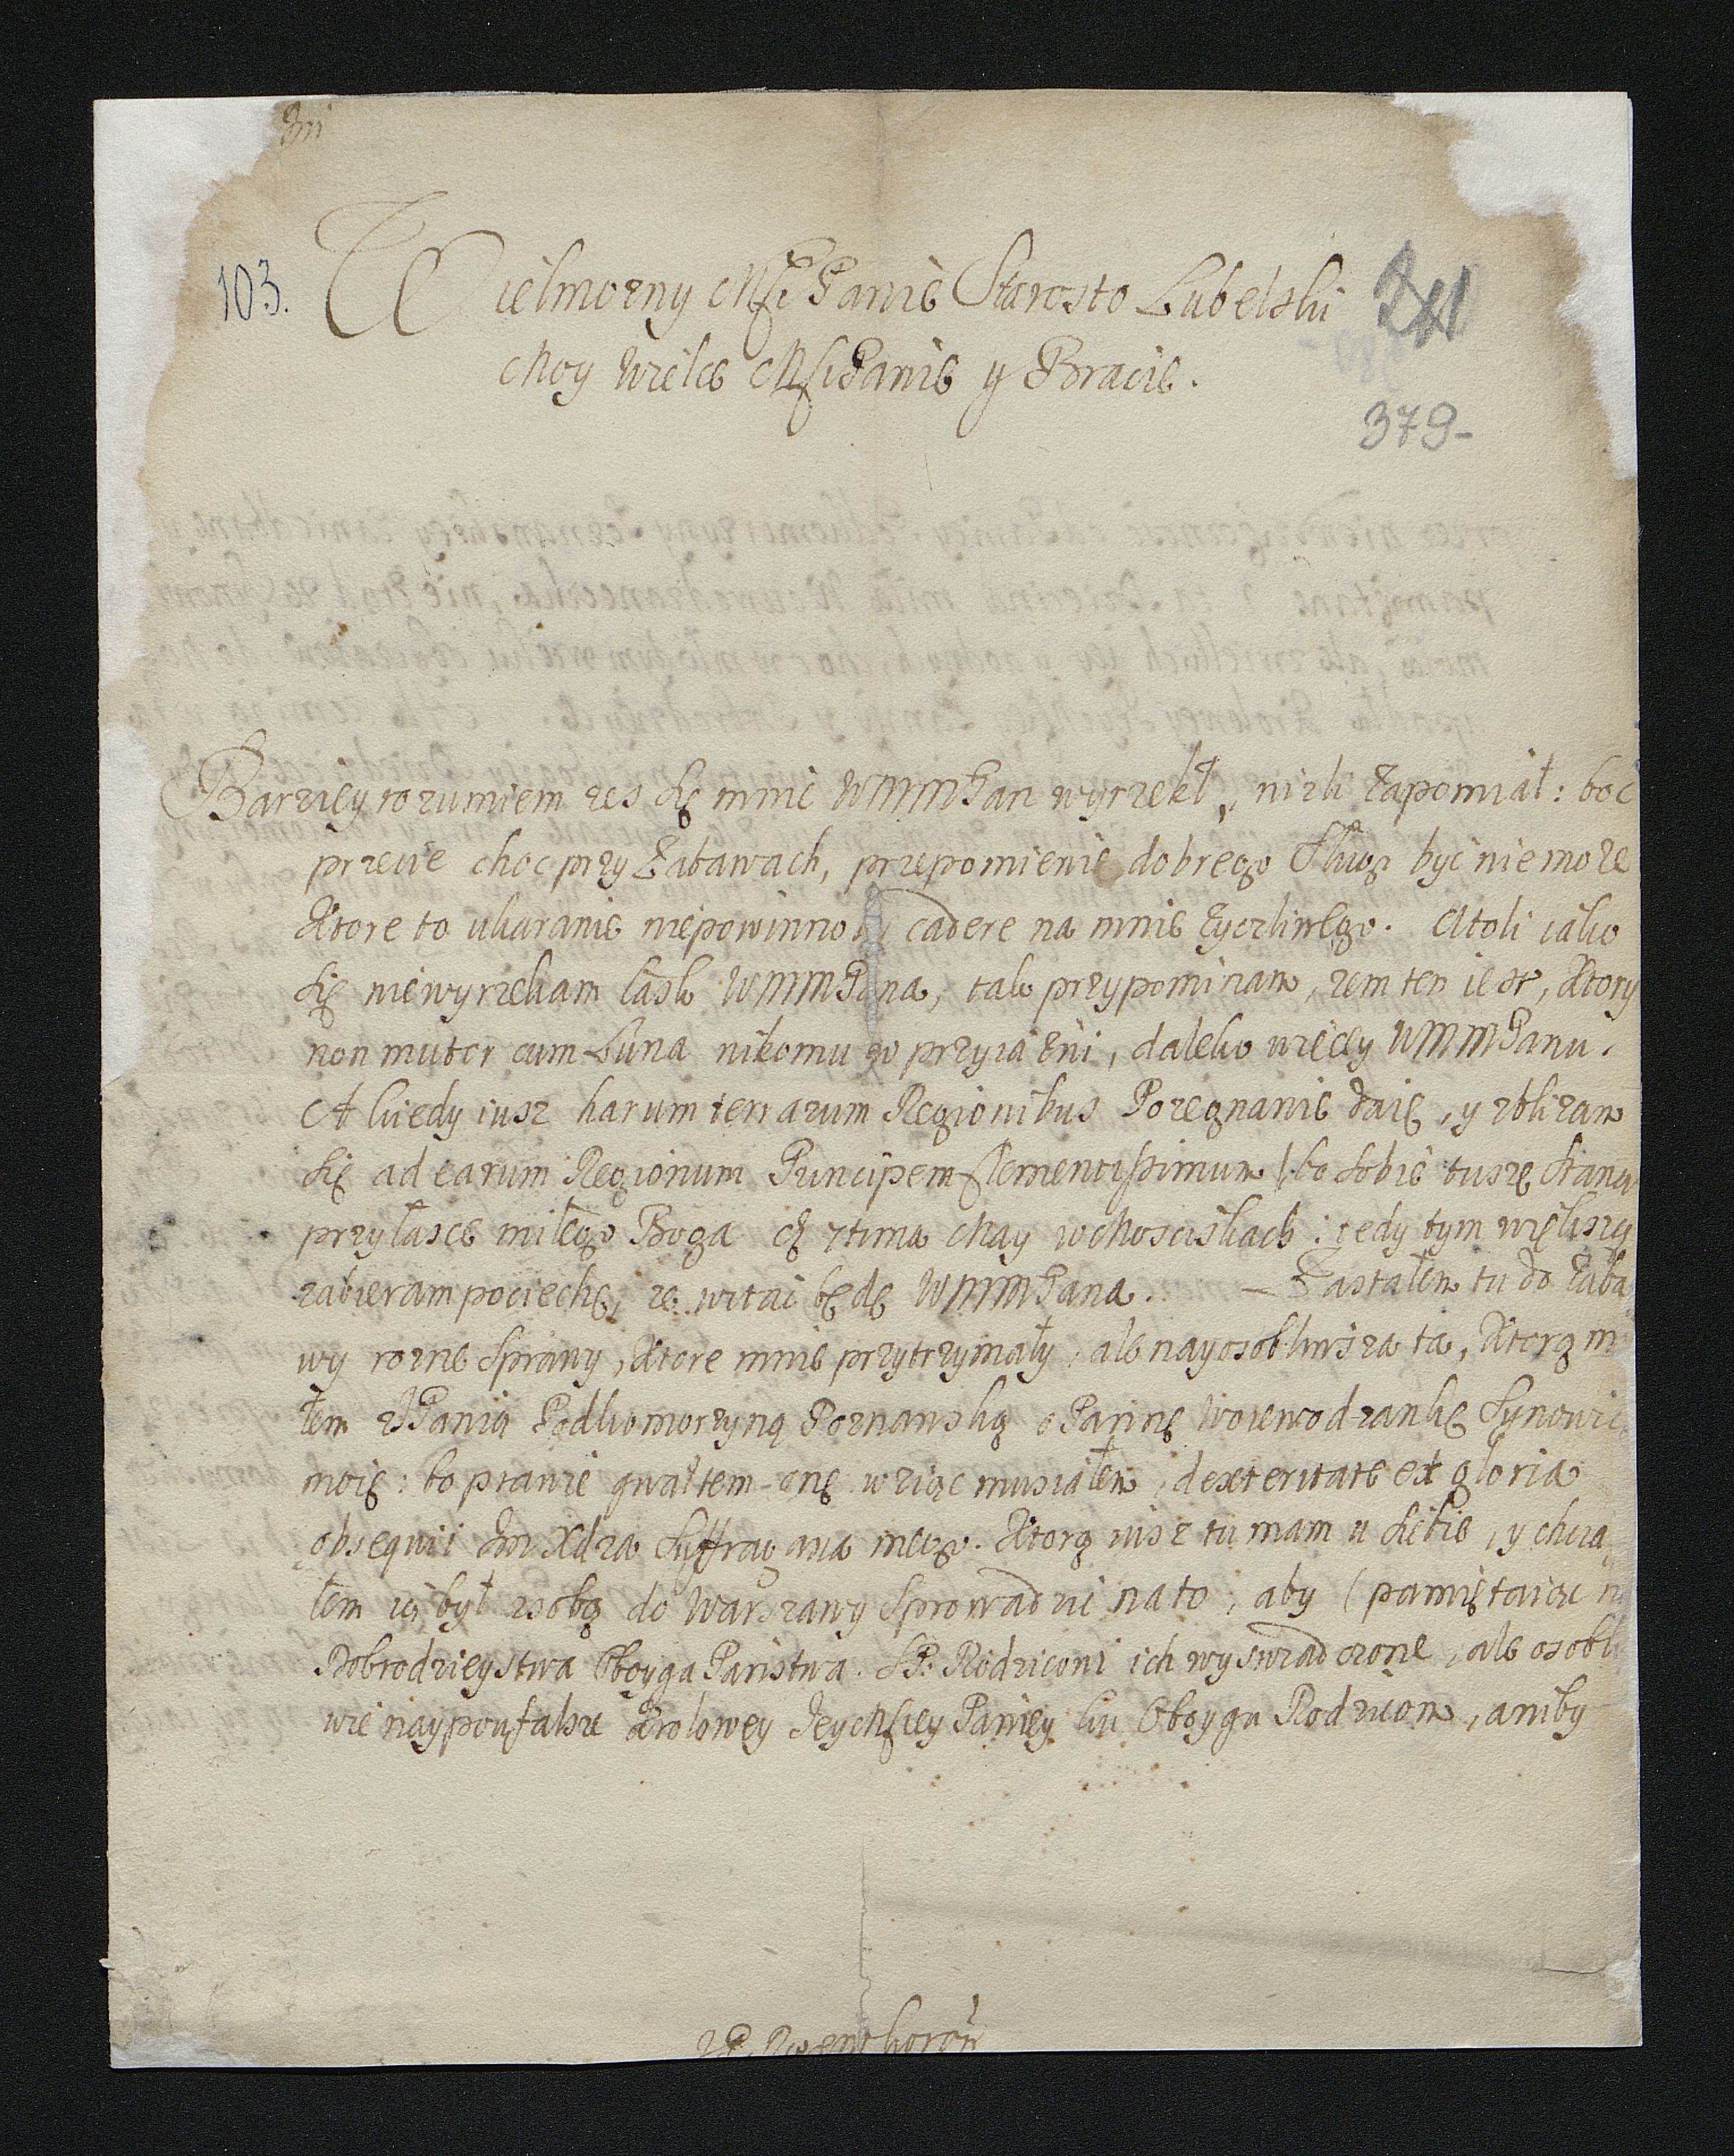 103.
Wielmozny Msći Panie Starosto Lubelski
Moy Wielce MsćiPanie y Bracie.
379-
Barziey rozumiem zes się mnie WMMPan wyrzekł, nizli zapomiał: boć
przecie choc przy zabawach, przepomienie dobrego Sługi być nie może
Ktore to ukaranie niepowinno cadere na mnie zyczliwego. Atoli iako
się niewyrzekam łask WMMPana, tak przypominam, zem ten iest, Ktory
non mutor cum Luna nikomu w przyiazni, daleko więcy WMMPanu.
A kiedy iusz harum terrarum Regionibus Pozegnanie daię, y zblizam
się ad earum Regionum Principem Clementissimum bo sobie tuszę stanąć
przy łasce miłego Boga Maij w Mosciskach: tedy tym większą
zabieram pociechę, ze witać będę WMMPana. — Zastałem tu do zaba
wy rozne Sprawy, Ktore mnie przytrzymały, ale nayosobliwsza ta, Ktorą m
łem zJPanią Podkomorzyną Poznanską o Pannę Woiewodzankę Synowic
moię: bo prawie gwałtem onę wziąc musiałem, dexteritate et gloria
obsequii Im Xdza Suffragana mego. Ktorą iusz tu mam u siebie, y chcia
łem ią był zsobą do Warszawy Sprowadzić na to, aby (pamiętaiąc n
Dobrodzieystwa Oboyga Panstwa. SP. Rodzicom ich wyswiadczone, ale osobli
wie naypoufalsze Krolowey JeyMsciey Paniey ku Oboygu Rodzicom, aniby